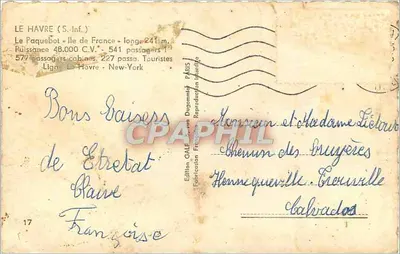 LE HAVRE (S.-Inf.)
Le Paquebot - Ile de France - long. 241 m.
Puissance 48.000 C.V. - 541 passagers 1
577 passagers cabines. 227 passa. Touristes
Ligne Le Havre - New-York
Bons Baisers
de Etretat
Claire
Françoise
17
Fabrication Française - Reproduction Interdite
CPAPHIL
Monsieur et Madame
Chemin des bruyères
Hennequeville Trouville
Calvados